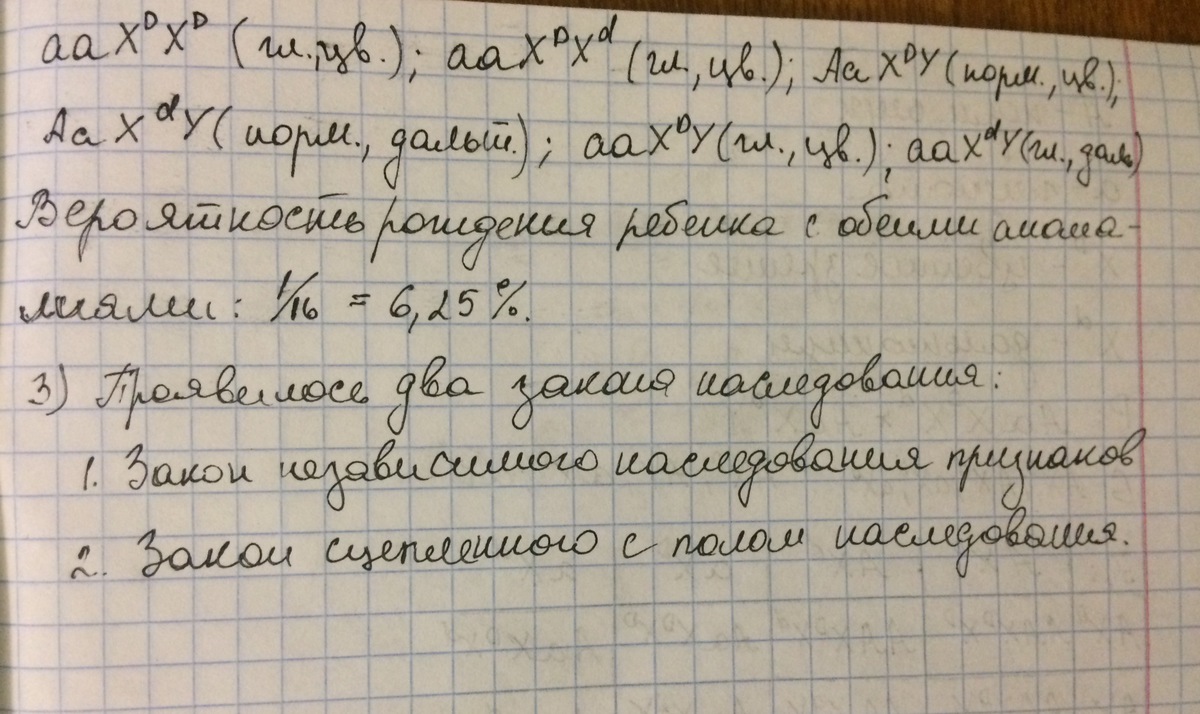 aa X^D X^D (гл., цв.); aa X^D X^d (гл., цв.); Aa X^D Y (норм., цв.);
Aa X^d Y (норм., дальт.); aa X^D Y (гл., цв.); aa X^d Y (гл., даль)
Вероятность рождения ребенка с обеими анома-
лиями: 1/16 = 6,25 %.
3) Проявилось два закона наследования:
1. Закон независимого наследования признаков
2. Закон сцепленного с полом наследования.